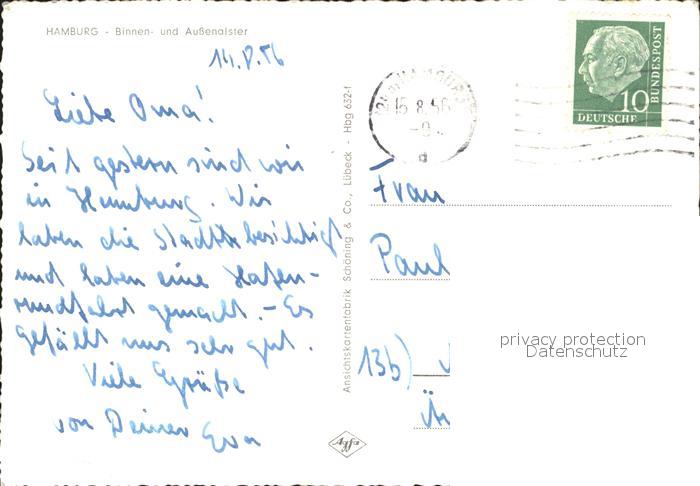 HAMBURG - Binnen- und Außenalster
14.8.56
Liebe Oma!
Seit gestern sind wir
in Hamburg. Wir
haben die Stadt besichtigt
und haben eine Hafen-
rundfahrt gemacht. - Es
gefällt uns sehr gut.
Viele Grüße
von Deiner Eva
Ansichtskartenfabrik Schöning & Co., Lübeck - Hbg 632-f
Agfa
15.8.56
d
10
DEUTSCHE
BUNDESPOST
Frau
Paul
13b)
privacy protection
Datenschutz